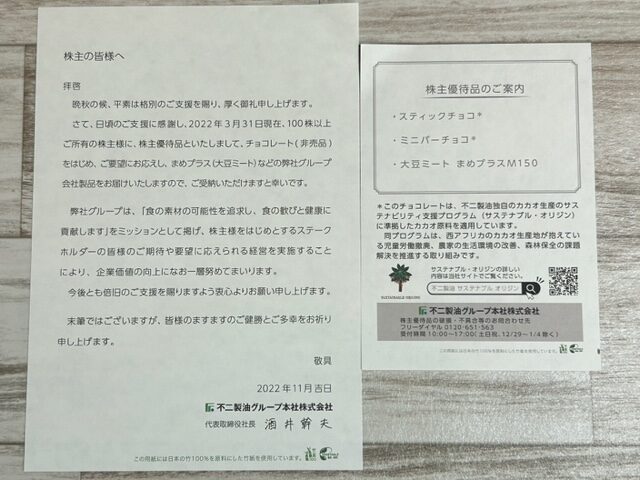 株主の皆様へ
拝啓
晩秋の候、平素は格別のご支援を賜り、厚く御礼申し上げます。
さて、日頃のご支援に感謝し、2022年3月31日現在、100株以上
ご所有の株主様に、株主優待品といたしまして、チョコレート(非売品)
をはじめ、ご要望にお応えし、まめプラス(大豆ミート)などの弊社グループ
会社製品をお届けいたしますので、ご受納いただけますと幸いです。
弊社グループは、「食の素材の可能性を追求し、食の歓びと健康に
貢献します」をミッションとして掲げ、株主様をはじめとするステーク
ホルダーの皆様のご期待や要望に応えられる経営を実施すること
により、企業価値の向上になお一層努めてまいります。
今後とも倍旧のご支援を賜りますよう衷心よりお願い申し上げます。
末筆ではございますが、皆様のますますのご健勝とご多幸をお祈り
申し上げます。
敬具
2022年11月吉日
不二製油グループ本社株式会社
代表取締役社長 酒井幹夫
この用紙には日本の竹100%を原料にした竹紙を使用しています。
株主優待品のご案内
・スティックチョコ*
・ミニバーチョコ*
・大豆ミート まめプラスM150
*このチョコレートは、不二製油独自のカカオ生産のサス
テナビリティ支援プログラム(サステナブル・オリジン)
に準拠したカカオ原料を適用しています。
同プログラムは、西アフリカのカカオ生産地が抱えてい
る児童労働撤廃、農家の生活環境の改善、森林保全の課題
解決を推進する取り組みです。
サステナブル・オリジンの詳しい
内容は当社サイトでご覧ください。
不二製油 サステナブル オリジン
SUSTAINABLE ORIGINS
不二製油グループ本社株式会社
株主優待品の破損・不具合等のお問合わせ先
フリーダイヤル 0120-651-563
受付時間 10:00~17:00(土日祝、12/29~1/4除く)
この用紙には日本の竹100%を原料にした竹紙を使用しています。